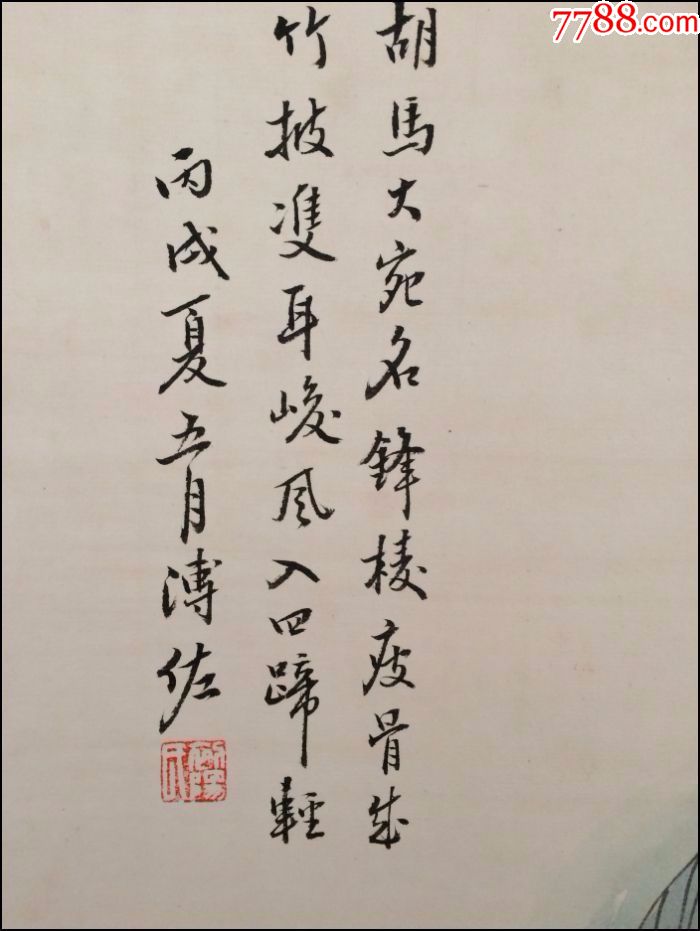 7788.com
胡馬大宛名鋒棱瘦骨成
竹披雙耳峻風入四蹄輕
丙戌夏五月溥佐